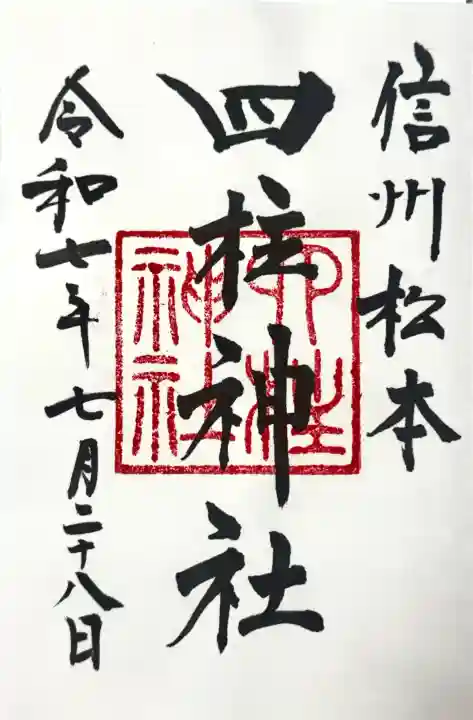 信州松本
四柱神社
令和七年七月二十八日
四柱神社